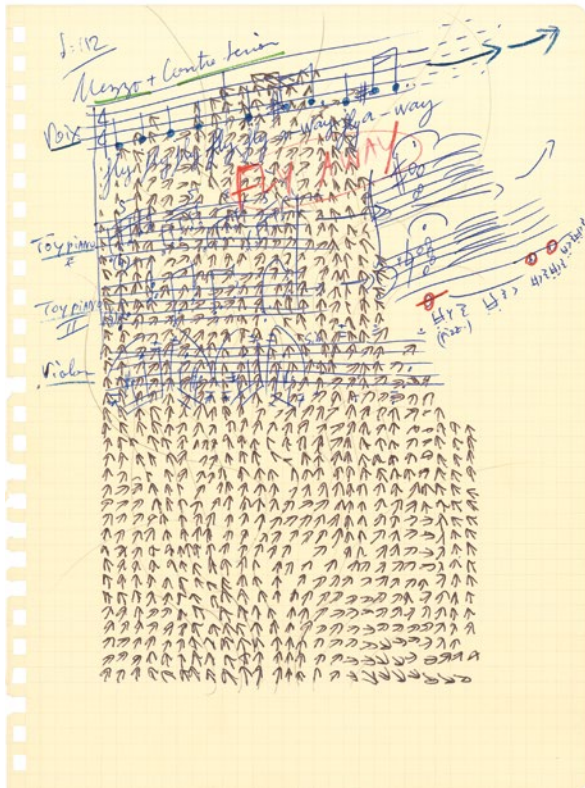 ♩=112
Mezzo + Contre tenor
Voix
fly fly fly fly fly a-way fly a-way
FLY AWAY
Toy piano I
Toy piano II
(pizz.)
Violon